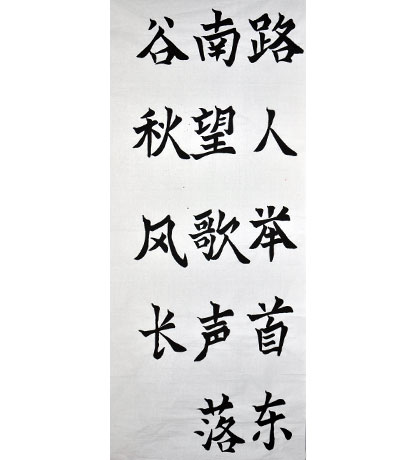 路人举首东
南望歌声落
谷秋风长